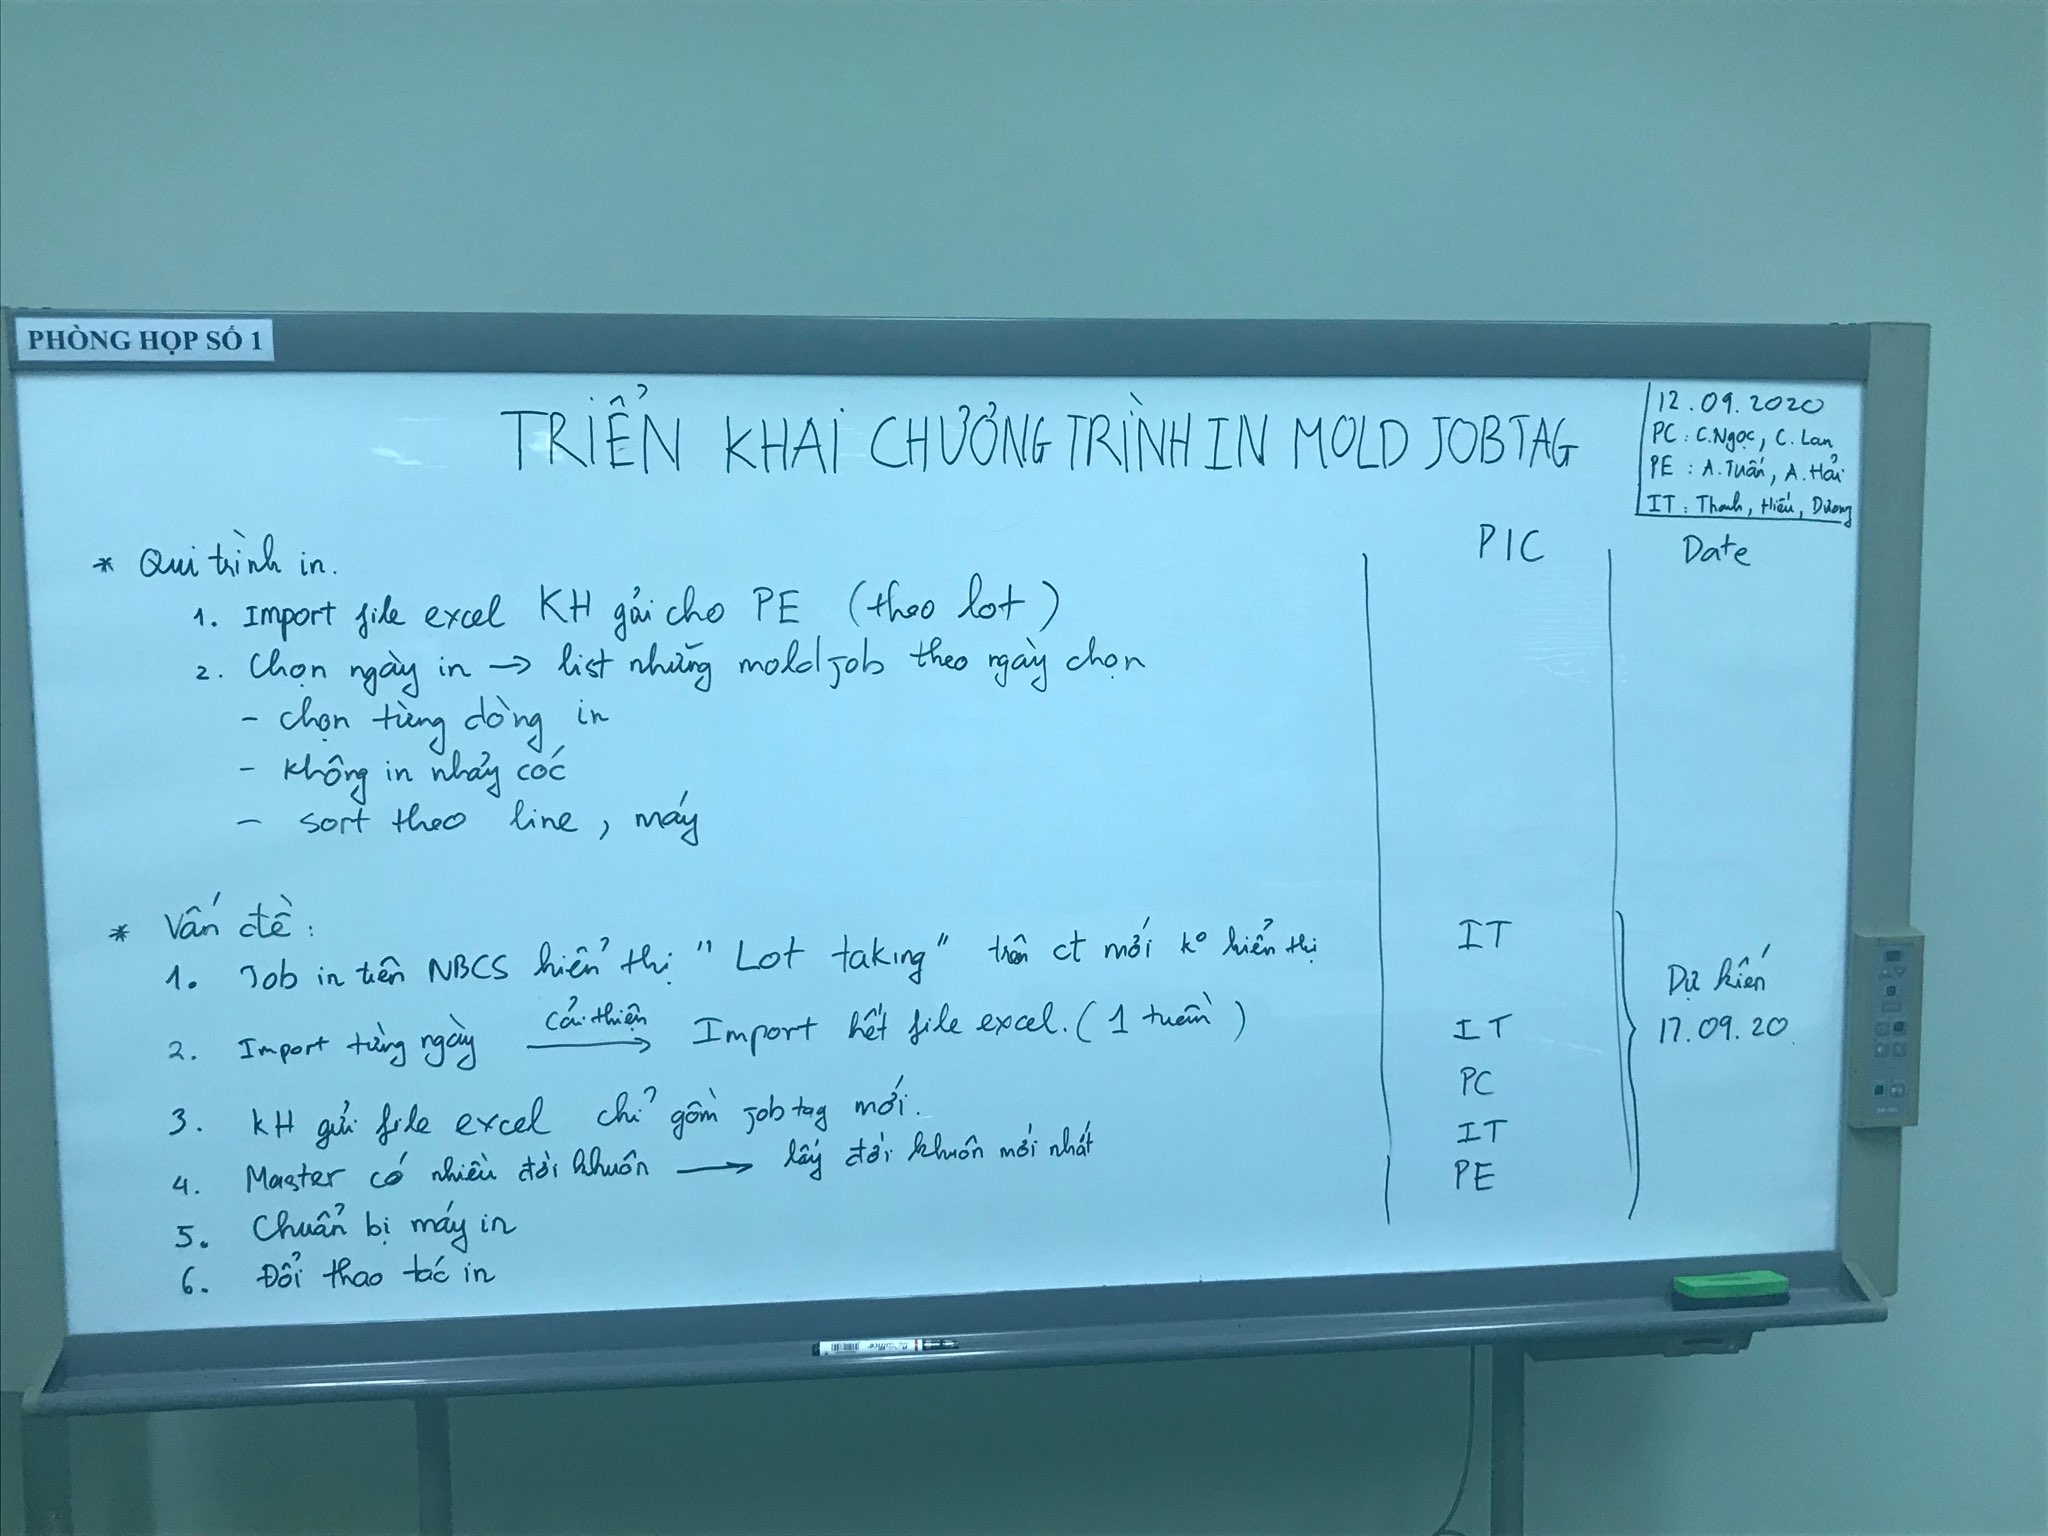 PHÒNG HỌP SỐ 1
TRIỂN KHAI CHƯƠNG TRÌNH IN MOLD JOBTAG
12.09.2020
PC: C.Ngọc, C. Lan
PE: A.Tuấn, A. Hải
IT: Thanh, Hiếu, Dương
PIC
Date
* Qui trình in.
1. Import file excel KH gửi cho PE (theo lot)
2. Chọn ngày in → list những mold job theo ngày chọn
- chọn từng dòng in
- không in nhảy cóc
- sort theo line, máy
* Vấn đề:
1. Job in trên NBCS hiển thị "Lot taking" trên ct mới k° hiển thị
IT
2. Import từng ngày cải thiện → Import hết file excel. (1 tuần)
IT
Dự kiến
17.09.20
3. KH gửi file excel chỉ gồm job tag mới.
PC
4. Master có nhiều đời khuôn → lấy đời khuôn mới nhất
IT
5. Chuẩn bị máy in
PE
6. Đổi thao tác in